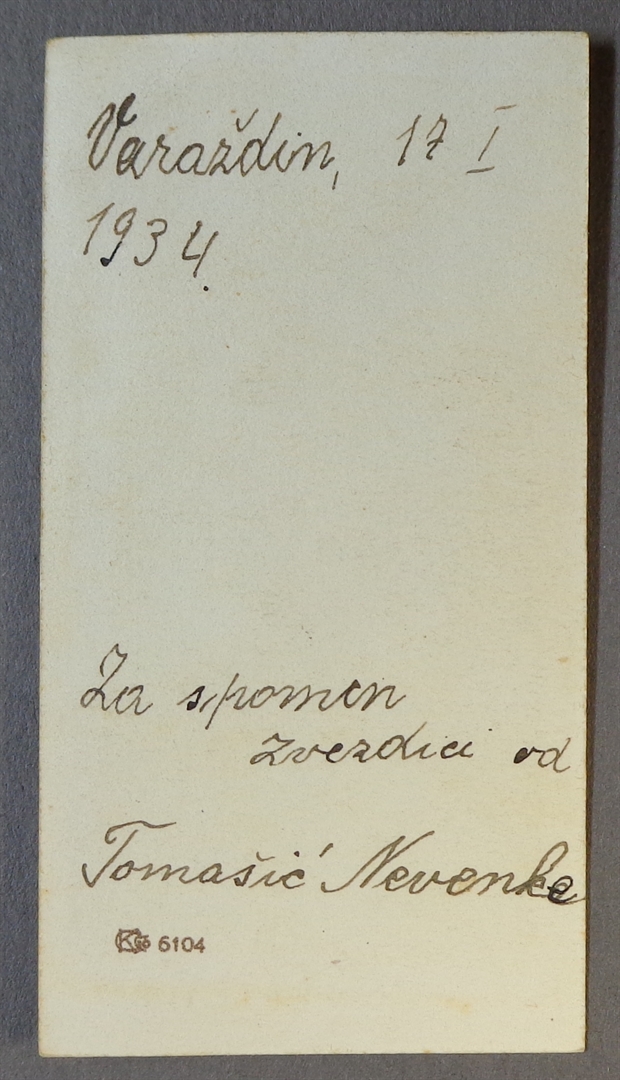 Varaždin, 17 I
1934.
Za spomen
zvezdici od
Tomašić Nevenke
6104